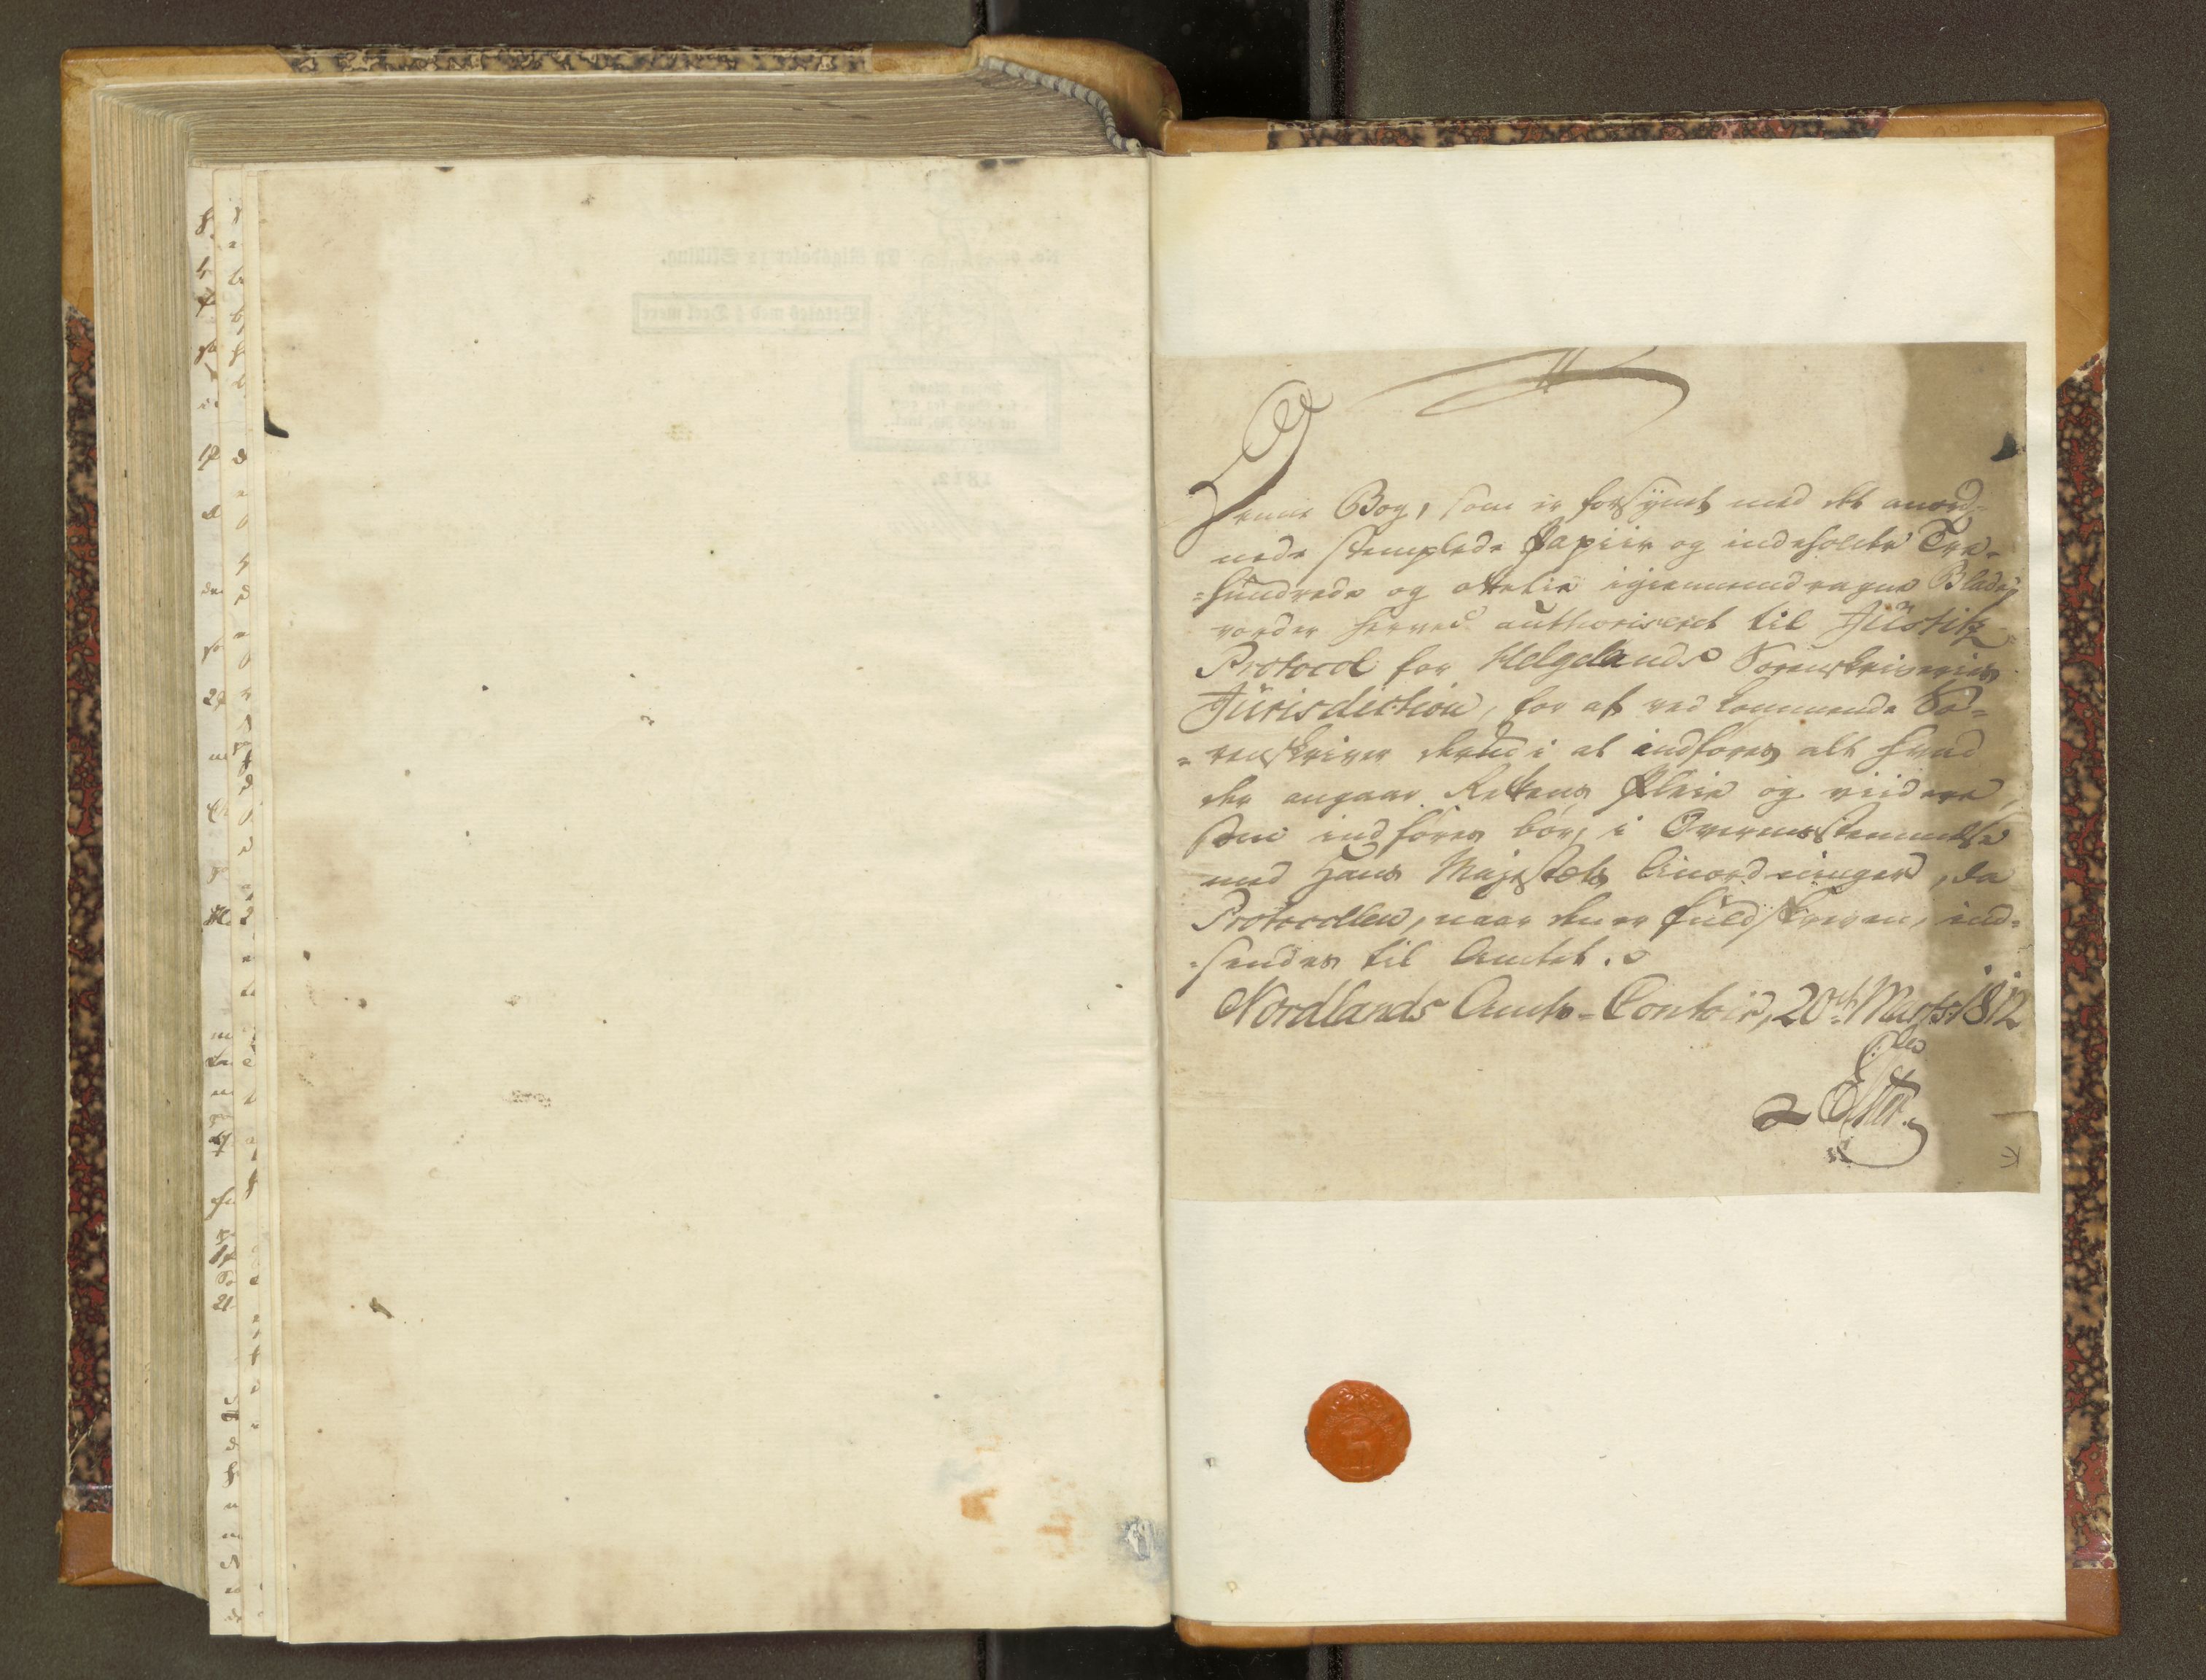 Denne Bog, som er forsynet med det anord-
nede stemplede Papiir og indeholder Tre-
=hundrede og ottetie igiennemdragne Blade,
vorder herved authoriseret til Justitz
Protocol for Helgelands Sorenskriveries
Jurisdiction, for af vedkommende So-
=renskriver derudi at indføres alt hvad
der angaar Rettens Pleie og viidere,
som indføres bør, i Overensstemmelse
med Hans Majestæts Anordninger, da
Protocollen, naar den er fuldskreven, ind-
=sendes til Amtet.
Nordlands Amts-Contoir, 20de Marts 1812